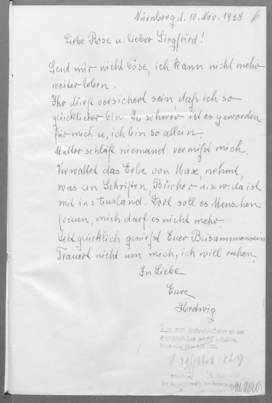 Nürnberg d. 10. Nov. 1938
Liebe Rose u. lieber Siegfried!
Seid mir nicht böse, ich kann nicht mehr
weiterleben.
Ihr dürft versichert sein daß ich so
glücklicher bin. Zu schwer ist es geworden
für mich u. ich bin so allein.
Mutter schläft niemand vermißt mich.
Verwaltet das Erbe von Maxe, nehmt,
was an Schriften, Bücher usw. da ist
mit ins Ausland. Dort soll es Menschen
freuen, mich darf es nicht mehr.
Lebt glücklich genießt Euer Beisammensein
Trauert nicht um mich, ich will ruhen.
In Liebe
Eure
Hedwig